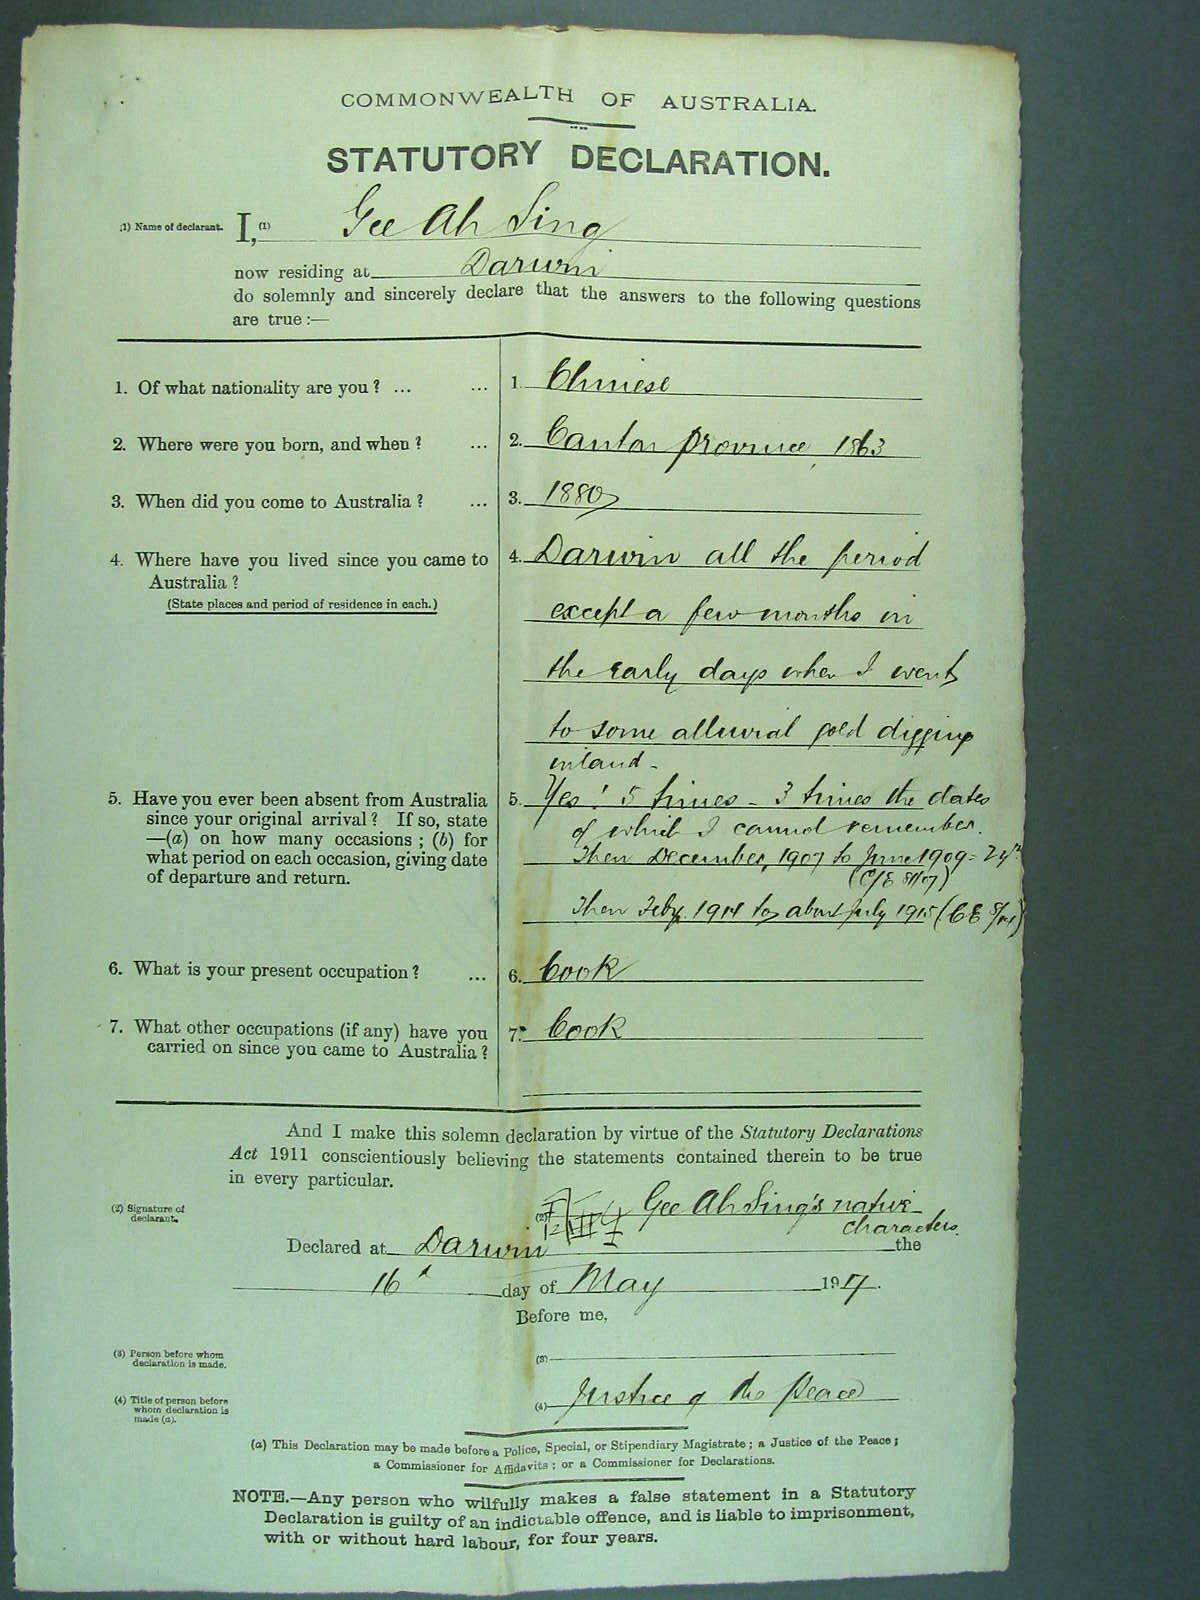 COMMONWEALTH OF AUSTRALIA.
STATUTORY DECLARATION.
(1) Name of declarant. I, (1) Gee Ah Sing
now residing at Darwin
do solemnly and sincerely declare that the answers to the following questions
are true :—
1. Of what nationality are you ? ... ... 1. Chinese
2. Where were you born, and when ? ... 2. Canton province, 1863
3. When did you come to Australia ? ... 3. 1880
4. Where have you lived since you came to
Australia ?
(State places and period of residence in each.)
4. Darwin all the period
except a few months in
the early days when I went
to some alluvial gold digging
inland -
5. Have you ever been absent from Australia
since your original arrival ? If so, state
—(a) on how many occasions ; (b) for
what period on each occasion, giving date
of departure and return.
5. Yes! 5 times - 3 times the dates
of which I cannot remember.
Then December, 1907 to June 1909 =
Then Feby. 1914 to about July 1915 (CE
6. What is your present occupation ? ... 6. Cook
7. What other occupations (if any) have you
carried on since you came to Australia ?
7. Cook
And I make this solemn declaration by virtue of the Statutory Declarations
Act 1911 conscientiously believing the statements contained therein to be true
in every particular.
(2) Signature of
declarant.
(2) Gee Ah Sing's native
characters.
Declared at Darwin the
16 day of May 1917.
Before me,
(3) Person before whom
declaration is made.
(3)
(4) Title of person before
whom declaration is
made (a).
(4) Justice of the Peace
(a) This Declaration may be made before a Police, Special, or Stipendiary Magistrate ; a Justice of the Peace ;
a Commissioner for Affidavits ; or a Commissioner for Declarations.
NOTE.—Any person who wilfully makes a false statement in a Statutory
Declaration is guilty of an indictable offence, and is liable to imprisonment,
with or without hard labour, for four years.